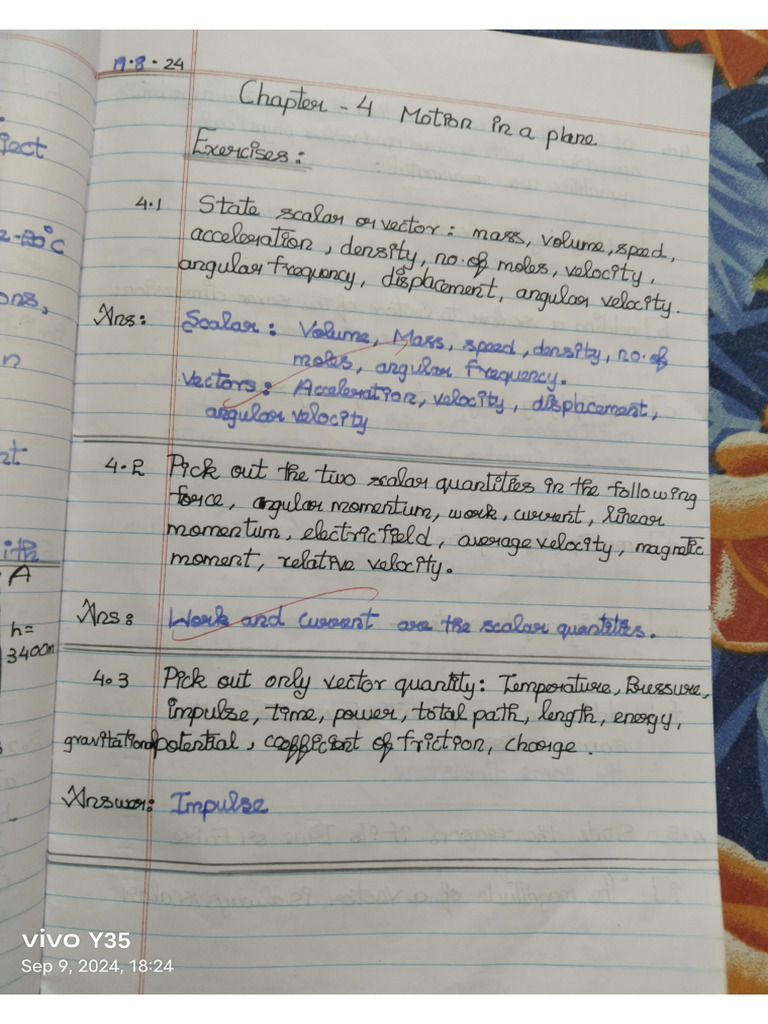 19.8.24
Chapter - 4 Motion in a plane
Exercises:
4.1 State scalar or vector: mass, volume, speed,
acceleration, density, no. of moles, velocity,
angular frequency, displacement, angular velocity.
Ans: Scalar: Volume, Mass, speed, density, no. of
moles, angular frequency.
Vectors: Acceleration, velocity, displacement,
angular velocity
4.2 Pick out the two scalar quantities in the following
force, angular momentum, work, current, linear
momentum, electric field, average velocity, magnetic
moment, relative velocity.
Ans: Work and current are the scalar quantities.
4.3 Pick out only vector quantity: Temperature, Pressure,
impulse, time, power, total path, length, energy,
gravitational potential, coefficient of friction, charge.
Answer: Impulse
h=
3400m
A
vivo Y35
Sep 9, 2024, 18:24